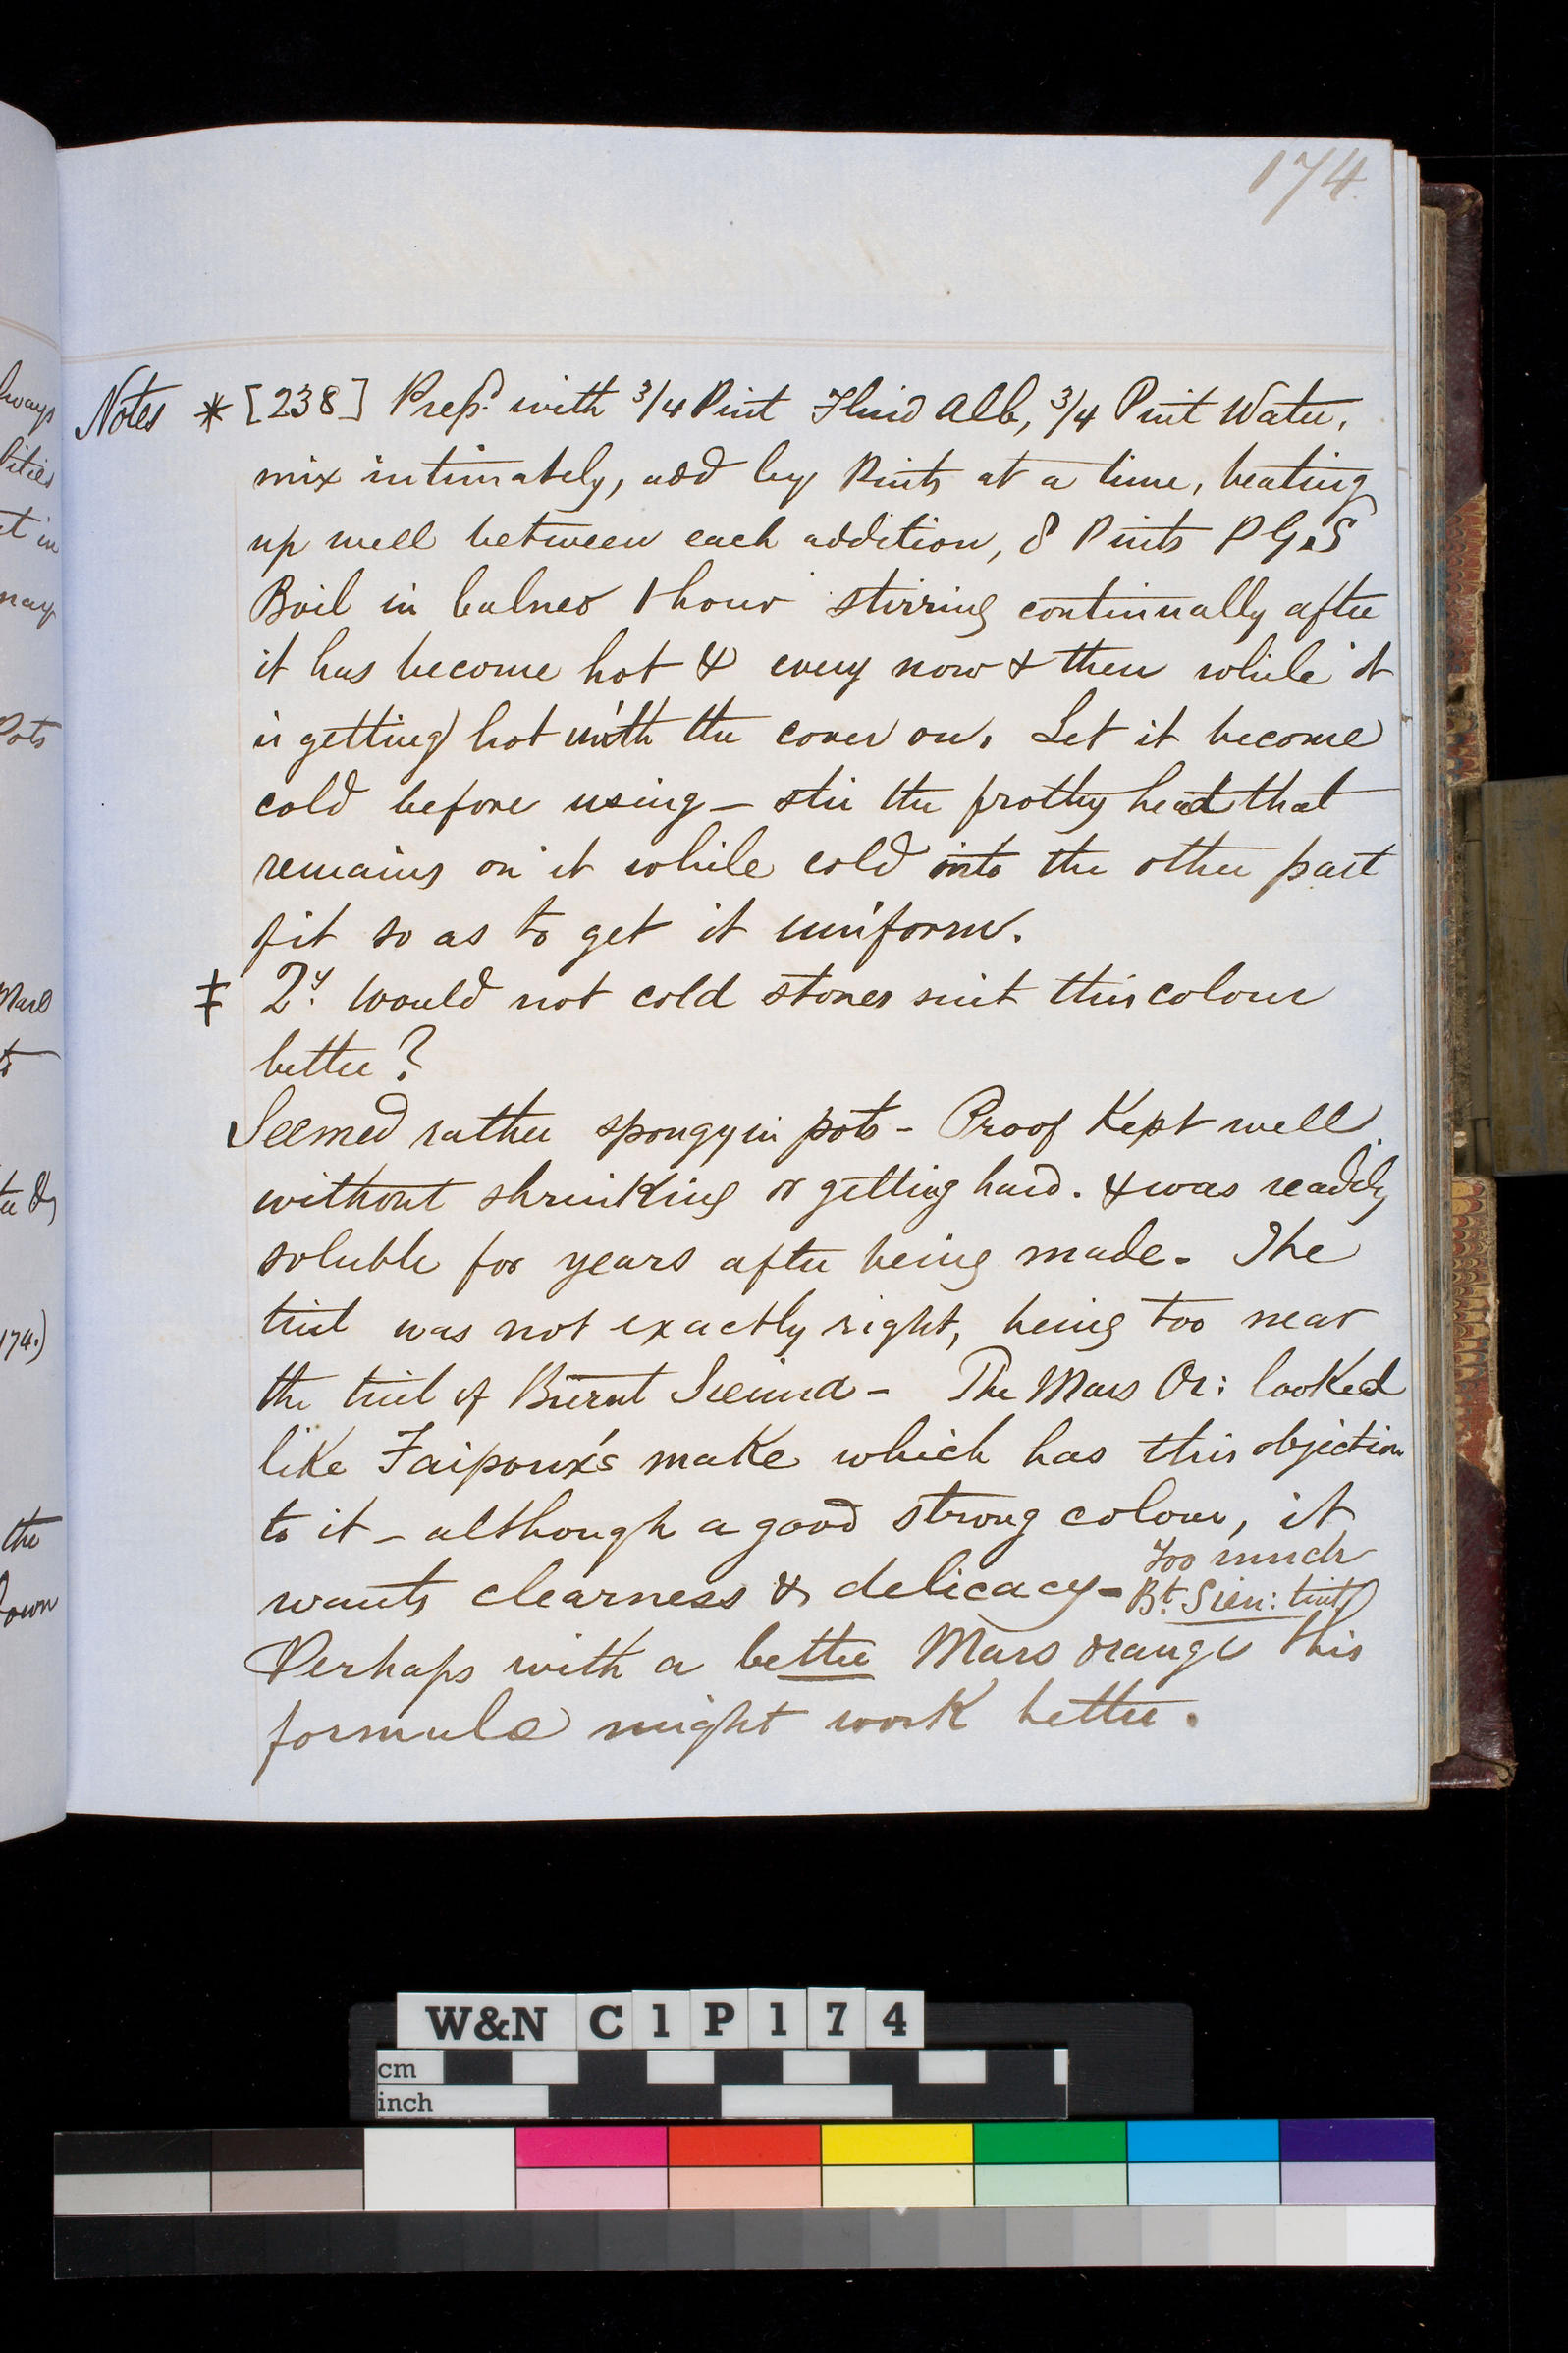 174
Notes * [238] Prepd. with 3/4 Pint Fluid Alb, 3/4 Pint Water,
mix intimately, add by Pints at a time, beating
up well between each addition, 8 Pints P G & S
Boil in balneo 1 hour stirring continually after
it has become hot & every now & then while it
is getting hot with the cover on. Let it become
cold before using – stir the frothy head that
remains on it while cold into the other part
of it so as to get it uniform.
‡ Qy. Would not cold stones suit this colour
better?
Seemed rather spongy in pots – Proof Kept well
without shrinking or getting hard. & was readily
soluble for years after being made – The
tint was not exactly right, being too near
the tint of Burnt Sienna – The Mars Or: looked
like Faipoux's make which has this objection
to it – although a good strong colour, it
wants clearness & delicacy – too much
Bt. Sien: tint
Perhaps with a better Mars orange this
formula might work better.
ways
t in
may
Pots
174.)
the
down
W&N C 1 P 1 7 4
cm
inch